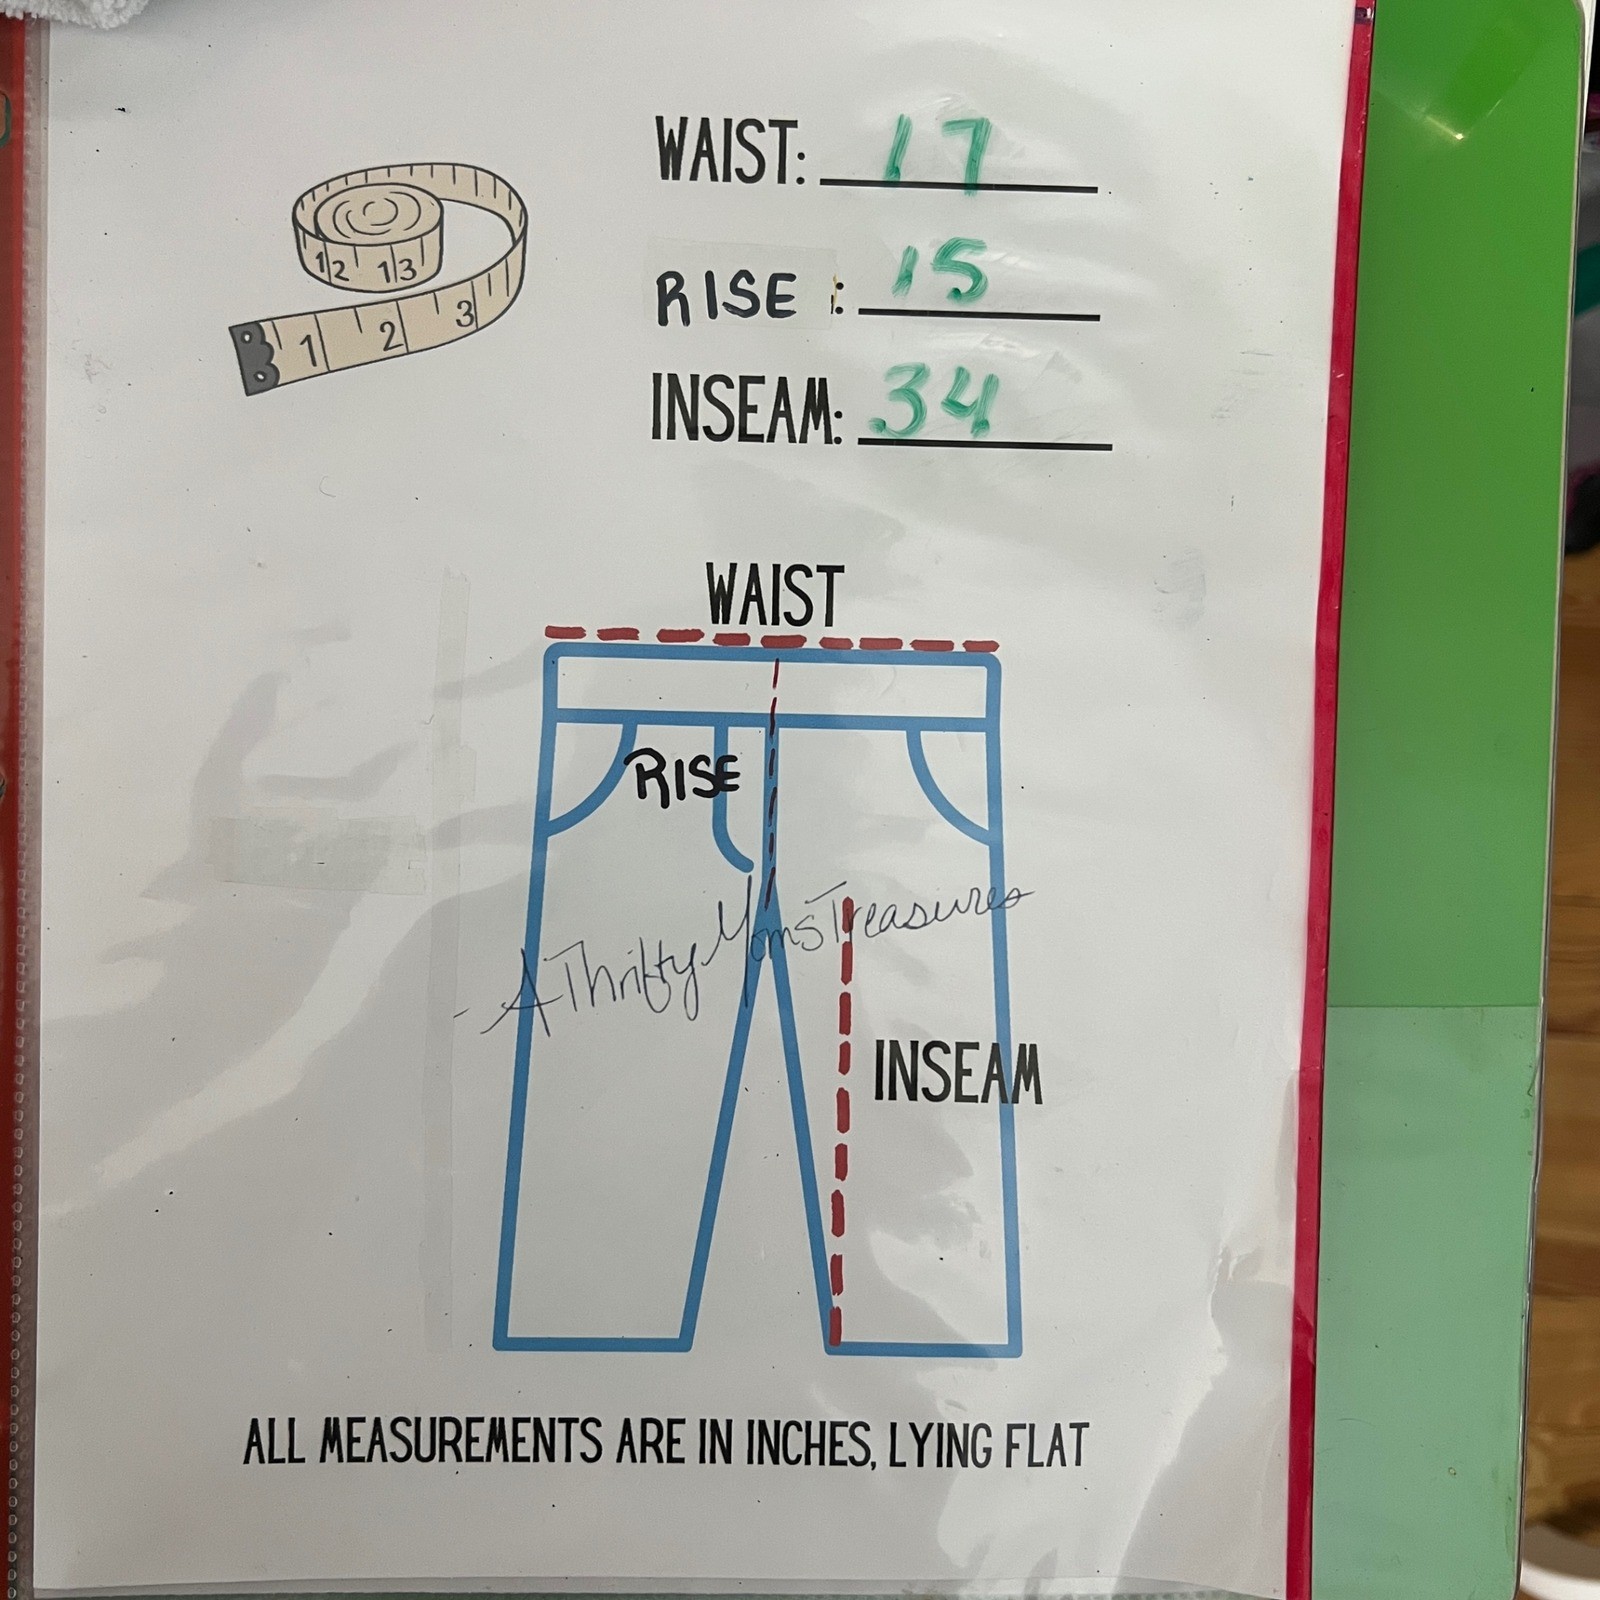 WAIST: 17
RISE : 15
INSEAM: 34
12 13
1 2 3
WAIST
RISE
A Thrifty Moms Treasures
INSEAM
ALL MEASUREMENTS ARE IN INCHES, LYING FLAT